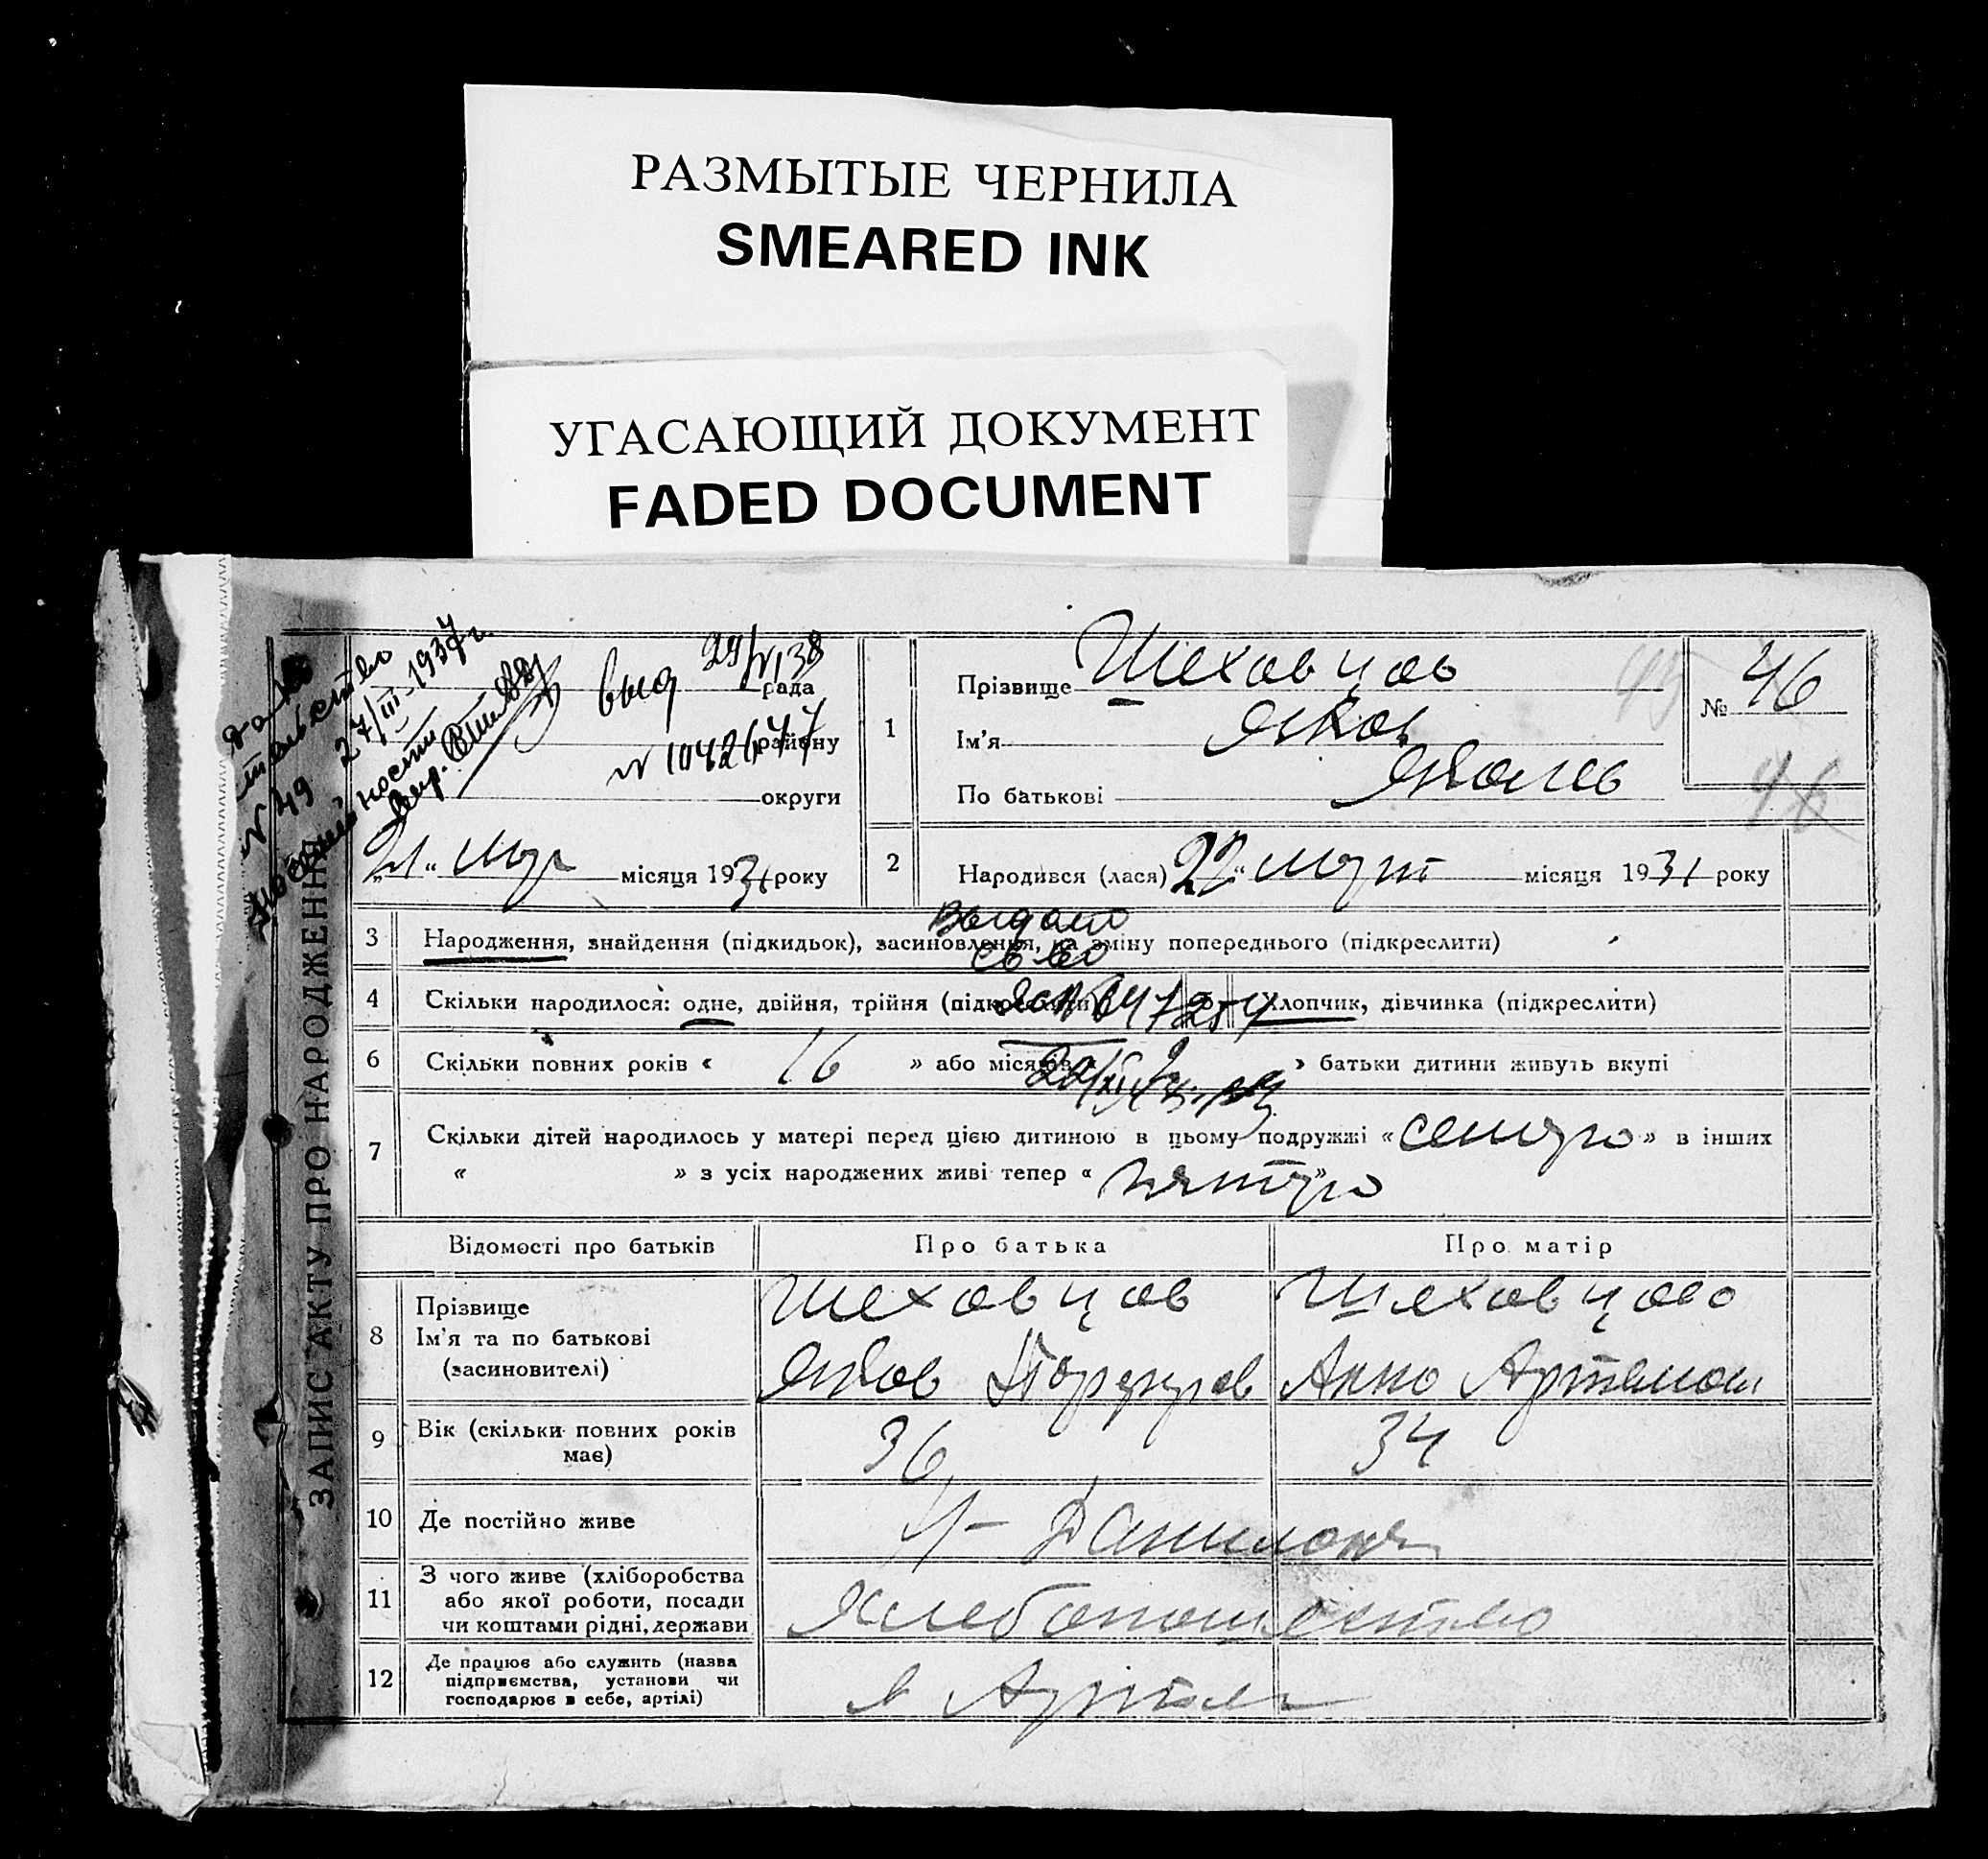 РАЗМЫТЫЕ ЧЕРНИЛА
SMEARED INK
УГАСАЮЩИЙ ДОКУМЕНТ
FADED DOCUMENT
ЗАПИС АКТУ ПРО НАРОДЖЕННЯ
№ 49 27/III-1937 г.
выд 29/VI 38
рада
№ 1042647
району
округи
„21“ мар місяця 1931 року
1
Прізвище Шеховцов
Ім'я Яков
По батькові Яковлев
№ 46
45
46
2
Народився (лася) 22 „ март місяця 1931 року
3 Народження, знайдення (підкидьок), засиновлення, на зміну попереднього (підкреслити)
Выдано
св-во
4 Скільки народилося: одне, двійня, трійня (підкреслити) 5 Хлопчик, дівчинка (підкреслити)
6 Скільки повних років « 16 » або місяців » батьки дитини живуть вкупі
7 Скільки дітей народилось у матері перед цією дитиною в цьому подружжі « семеро » в інших
« » з усіх народжених живі тепер « пятеро »
Відомості про батьків Про батька Про матір
8 Прізвище Шеховцов Шеховцово
Ім'я та по батькові
(засиновителі) Яков Анно Артемов
9 Вік (скільки повних років має) 36 34
10 Де постійно живе
11 З чого живе (хліборобства
або якої роботи, посади
чи коштами рідні, держави Хлебопашество
12 Де працює або служить (назва
підприємства, установи чи
господарює в себе, артілі) в Артели